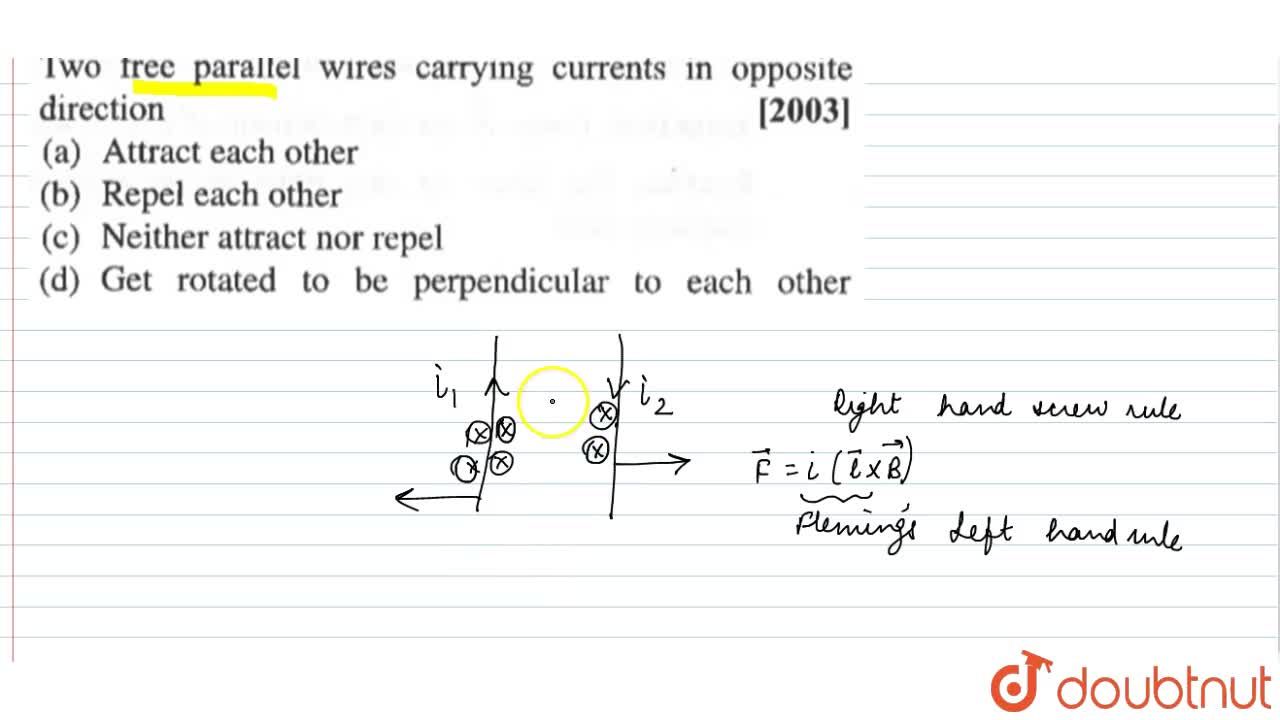 Two free parallel wires carrying currents in opposite
direction [2003]
(a) Attract each other
(b) Repel each other
(c) Neither attract nor repel
(d) Get rotated to be perpendicular to each other
i₁ i₂
Right hand screw rule
F⃗ = i (l⃗ × B⃗)
Fleming's Left hand rule
doubtnut